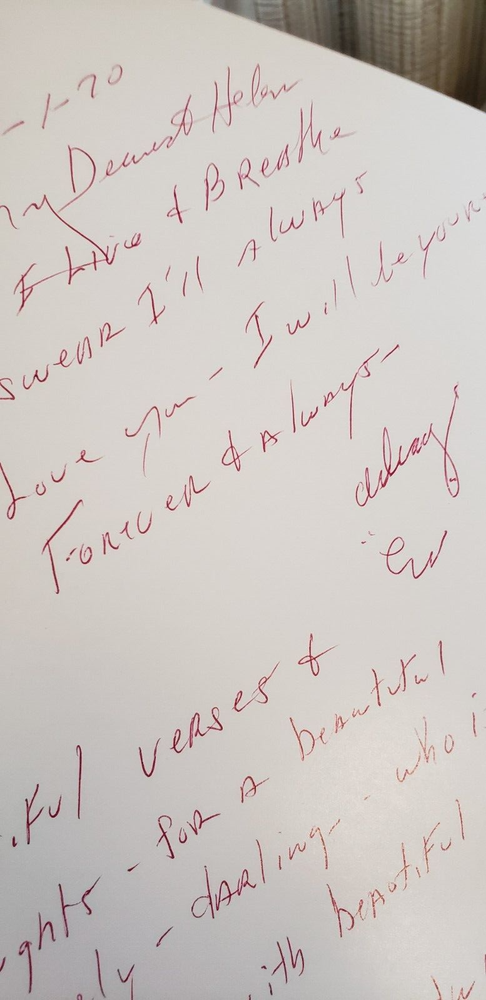 -1-70
My Dearest Helen
I Live & Breathe
swear I'll Always
Love you - I will be your
Forever & Always -
Ed
.ful verses &
ughts - for a beautiful
ly - darling - who is
ith beautiful